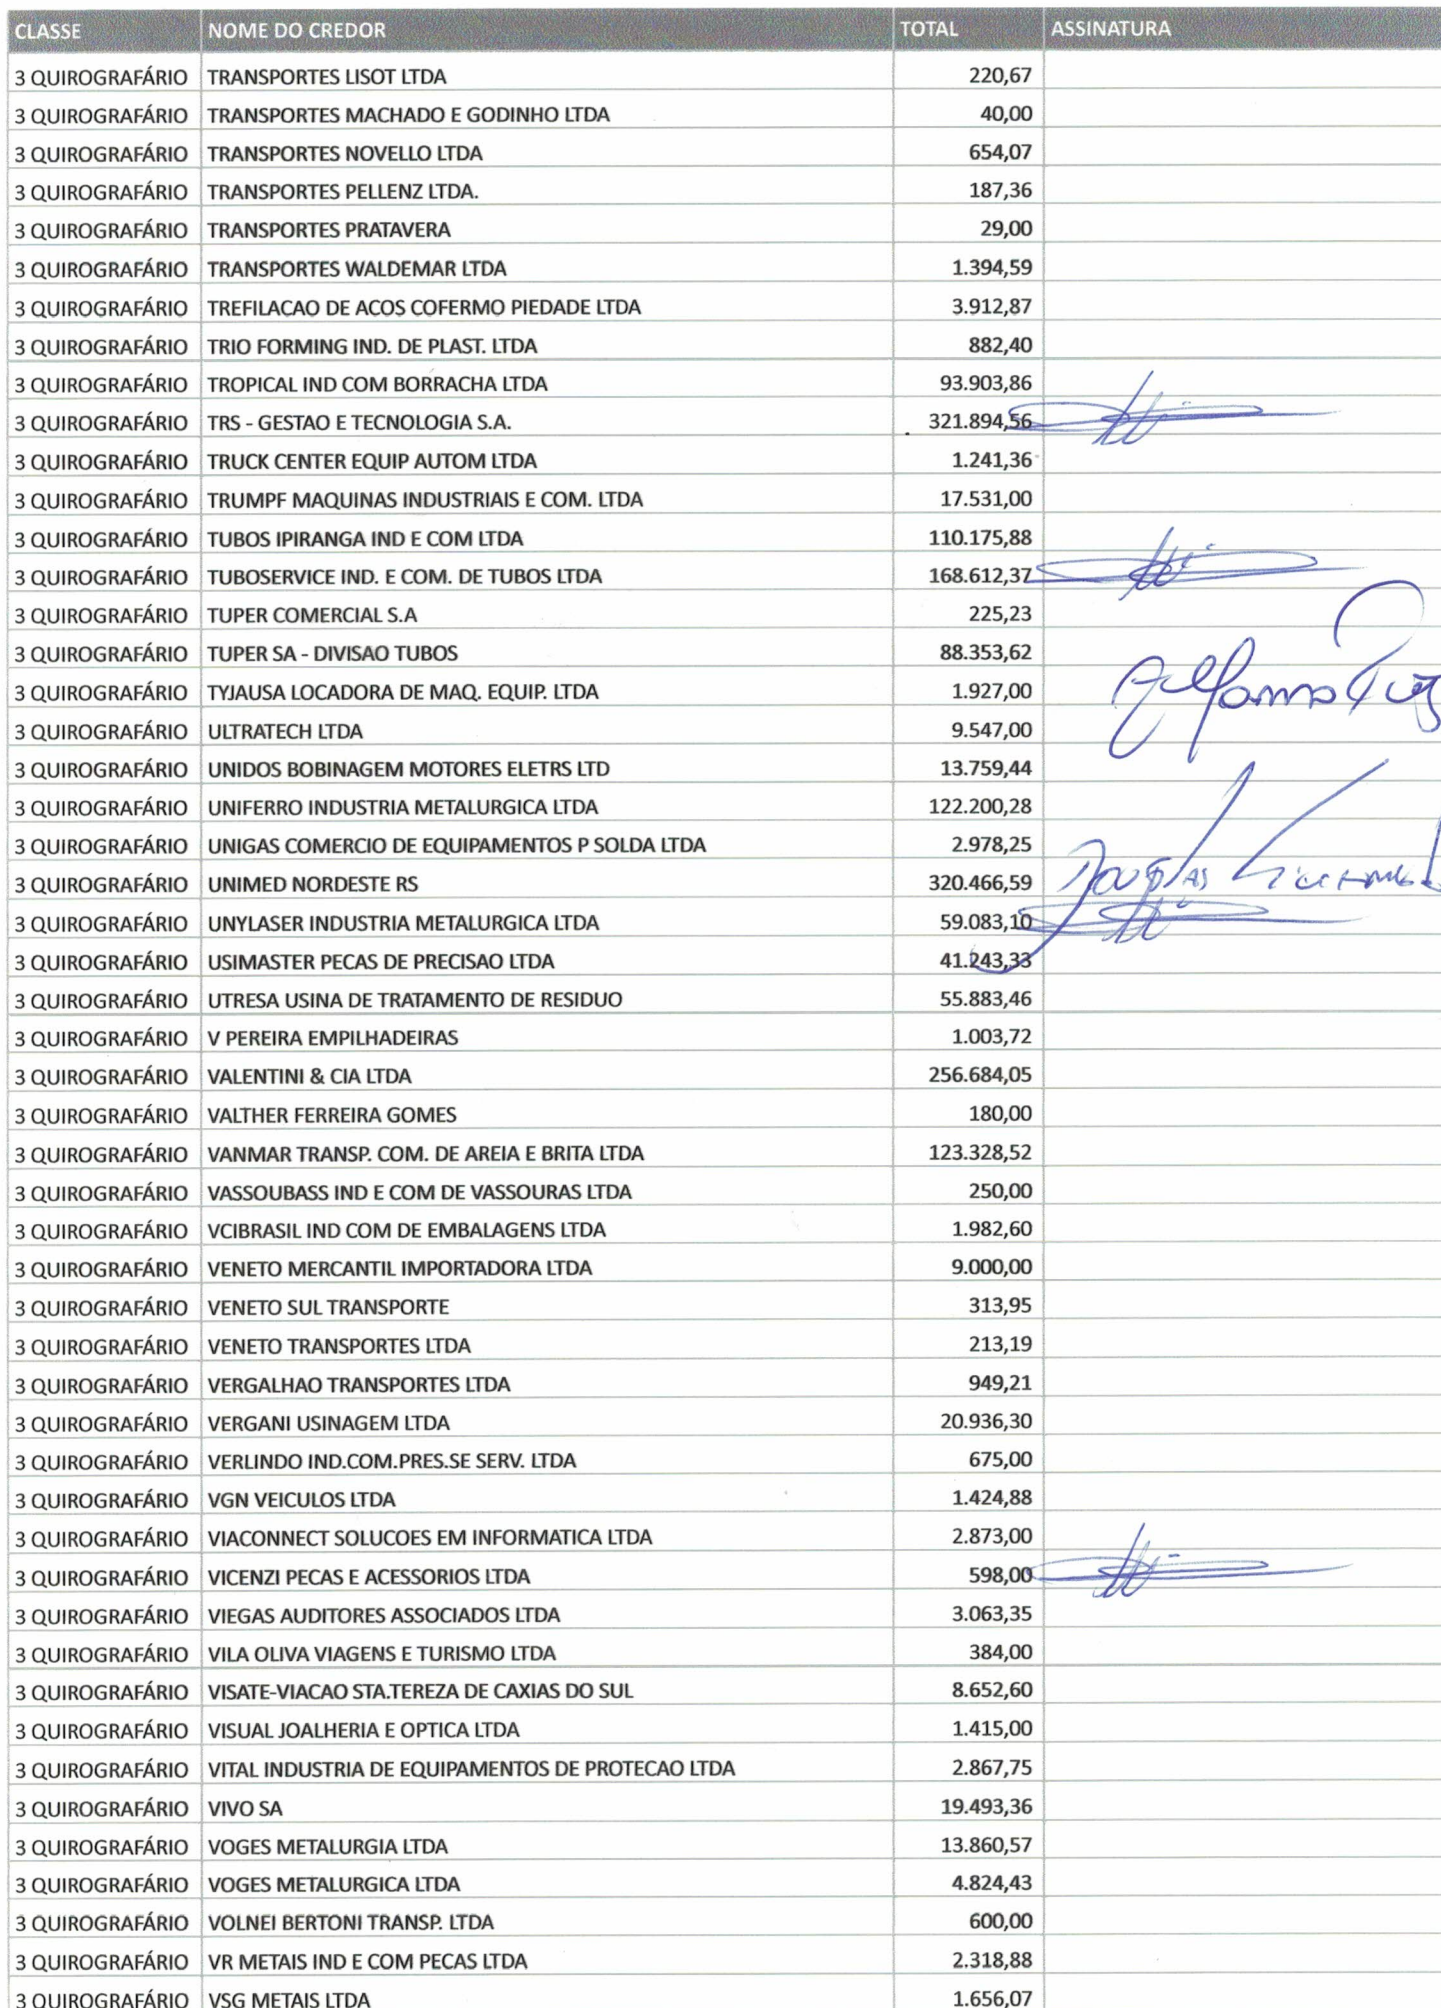 CLASSE NOME DO CREDOR TOTAL ASSINATURA
3 QUIROGRAFÁRIO TRANSPORTES LISOT LTDA 220,67
3 QUIROGRAFÁRIO TRANSPORTES MACHADO E GODINHO LTDA 40,00
3 QUIROGRAFÁRIO TRANSPORTES NOVELLO LTDA 654,07
3 QUIROGRAFÁRIO TRANSPORTES PELLENZ LTDA. 187,36
3 QUIROGRAFÁRIO TRANSPORTES PRATAVERA 29,00
3 QUIROGRAFÁRIO TRANSPORTES WALDEMAR LTDA 1.394,59
3 QUIROGRAFÁRIO TREFILACAO DE ACOS COFERMO PIEDADE LTDA 3.912,87
3 QUIROGRAFÁRIO TRIO FORMING IND. DE PLAST. LTDA 882,40
3 QUIROGRAFÁRIO TROPICAL IND COM BORRACHA LTDA 93.903,86
3 QUIROGRAFÁRIO TRS - GESTAO E TECNOLOGIA S.A. 321.894,56
3 QUIROGRAFÁRIO TRUCK CENTER EQUIP AUTOM LTDA 1.241,36
3 QUIROGRAFÁRIO TRUMPF MAQUINAS INDUSTRIAIS E COM. LTDA 17.531,00
3 QUIROGRAFÁRIO TUBOS IPIRANGA IND E COM LTDA 110.175,88
3 QUIROGRAFÁRIO TUBOSERVICE IND. E COM. DE TUBOS LTDA 168.612,37
3 QUIROGRAFÁRIO TUPER COMERCIAL S.A 225,23
3 QUIROGRAFÁRIO TUPER SA - DIVISAO TUBOS 88.353,62
3 QUIROGRAFÁRIO TYJAUSA LOCADORA DE MAQ. EQUIP. LTDA 1.927,00
3 QUIROGRAFÁRIO ULTRATECH LTDA 9.547,00
3 QUIROGRAFÁRIO UNIDOS BOBINAGEM MOTORES ELETRS LTD 13.759,44
3 QUIROGRAFÁRIO UNIFERRO INDUSTRIA METALURGICA LTDA 122.200,28
3 QUIROGRAFÁRIO UNIGAS COMERCIO DE EQUIPAMENTOS P SOLDA LTDA 2.978,25
3 QUIROGRAFÁRIO UNIMED NORDESTE RS 320.466,59
3 QUIROGRAFÁRIO UNYLASER INDUSTRIA METALURGICA LTDA 59.083,10
3 QUIROGRAFÁRIO USIMASTER PECAS DE PRECISAO LTDA 41.243,33
3 QUIROGRAFÁRIO UTRESA USINA DE TRATAMENTO DE RESIDUO 55.883,46
3 QUIROGRAFÁRIO V PEREIRA EMPILHADEIRAS 1.003,72
3 QUIROGRAFÁRIO VALENTINI & CIA LTDA 256.684,05
3 QUIROGRAFÁRIO VALTHER FERREIRA GOMES 180,00
3 QUIROGRAFÁRIO VANMAR TRANSP. COM. DE AREIA E BRITA LTDA 123.328,52
3 QUIROGRAFÁRIO VASSOUBASS IND E COM DE VASSOURAS LTDA 250,00
3 QUIROGRAFÁRIO VCIBRASIL IND COM DE EMBALAGENS LTDA 1.982,60
3 QUIROGRAFÁRIO VENETO MERCANTIL IMPORTADORA LTDA 9.000,00
3 QUIROGRAFÁRIO VENETO SUL TRANSPORTE 313,95
3 QUIROGRAFÁRIO VENETO TRANSPORTES LTDA 213,19
3 QUIROGRAFÁRIO VERGALHAO TRANSPORTES LTDA 949,21
3 QUIROGRAFÁRIO VERGANI USINAGEM LTDA 20.936,30
3 QUIROGRAFÁRIO VERLINDO IND.COM.PRES.SE SERV. LTDA 675,00
3 QUIROGRAFÁRIO VGN VEICULOS LTDA 1.424,88
3 QUIROGRAFÁRIO VIACONNECT SOLUCOES EM INFORMATICA LTDA 2.873,00
3 QUIROGRAFÁRIO VICENZI PECAS E ACESSORIOS LTDA 598,00
3 QUIROGRAFÁRIO VIEGAS AUDITORES ASSOCIADOS LTDA 3.063,35
3 QUIROGRAFÁRIO VILA OLIVA VIAGENS E TURISMO LTDA 384,00
3 QUIROGRAFÁRIO VISATE-VIACAO STA.TEREZA DE CAXIAS DO SUL 8.652,60
3 QUIROGRAFÁRIO VISUAL JOALHERIA E OPTICA LTDA 1.415,00
3 QUIROGRAFÁRIO VITAL INDUSTRIA DE EQUIPAMENTOS DE PROTECAO LTDA 2.867,75
3 QUIROGRAFÁRIO VIVO SA 19.493,36
3 QUIROGRAFÁRIO VOGES METALURGIA LTDA 13.860,57
3 QUIROGRAFÁRIO VOGES METALURGICA LTDA 4.824,43
3 QUIROGRAFÁRIO VOLNEI BERTONI TRANSP. LTDA 600,00
3 QUIROGRAFÁRIO VR METAIS IND E COM PECAS LTDA 2.318,88
3 QUIROGRAFÁRIO VSG METAIS LTDA 1.656,07